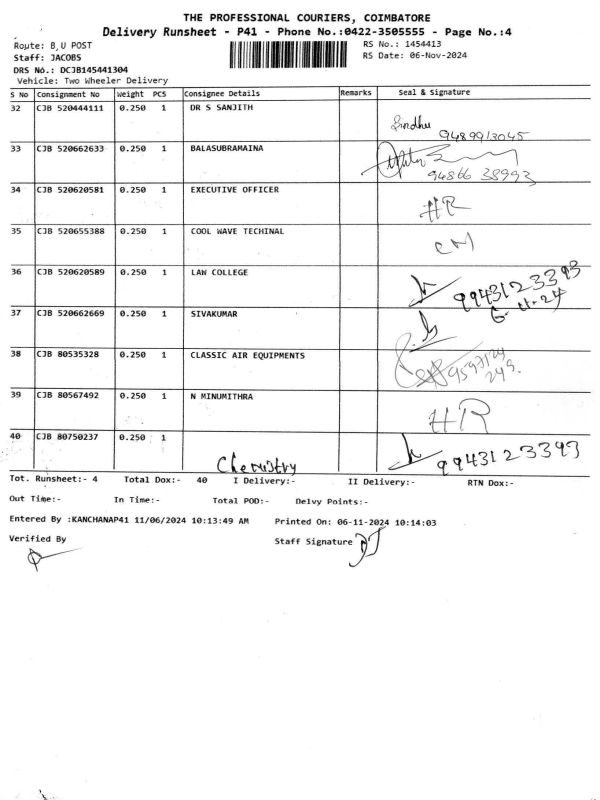 THE PROFESSIONAL COURIERS, COIMBATORE
Delivery Runsheet - P41 - Phone No.:0422-3505555 - Page No.:4
Route: B,U POST
RS No.: 1454413
Staff: JACOBS
RS Date: 06-Nov-2024
DRS No.: DCJB145441304
Vehicle: Two Wheeler Delivery
S No Consignment No Weight PCS Consignee Details Remarks Seal & Signature
32 CJB 520444111 0.250 1 DR S SANJITH
Sindhu
9489913045
33 CJB 520662633 0.250 1 BALASUBRAMAINA
94866 38993
34 CJB 520620581 0.250 1 EXECUTIVE OFFICER
HR
35 CJB 520655388 0.250 1 COOL WAVE TECHINAL
36 CJB 520620589 0.250 1 LAW COLLEGE
9943123393
6-11-24
37 CJB 520662669 0.250 1 SIVAKUMAR
38 CJB 80535328 0.250 1 CLASSIC AIR EQUIPMENTS
39 CJB 80567492 0.250 1 N MINUMITHRA
HR
40 CJB 80750237 0.250 1
Chemistry
9943123393
Tot. Runsheet:- 4 Total Dox:- 40 I Delivery:- II Delivery:- RTN Dox:-
Out Time:- In Time:- Total POD:- Delvy Points:-
Entered By :KANCHANAP41 11/06/2024 10:13:49 AM Printed On: 06-11-2024 10:14:03
Verified By Staff Signature